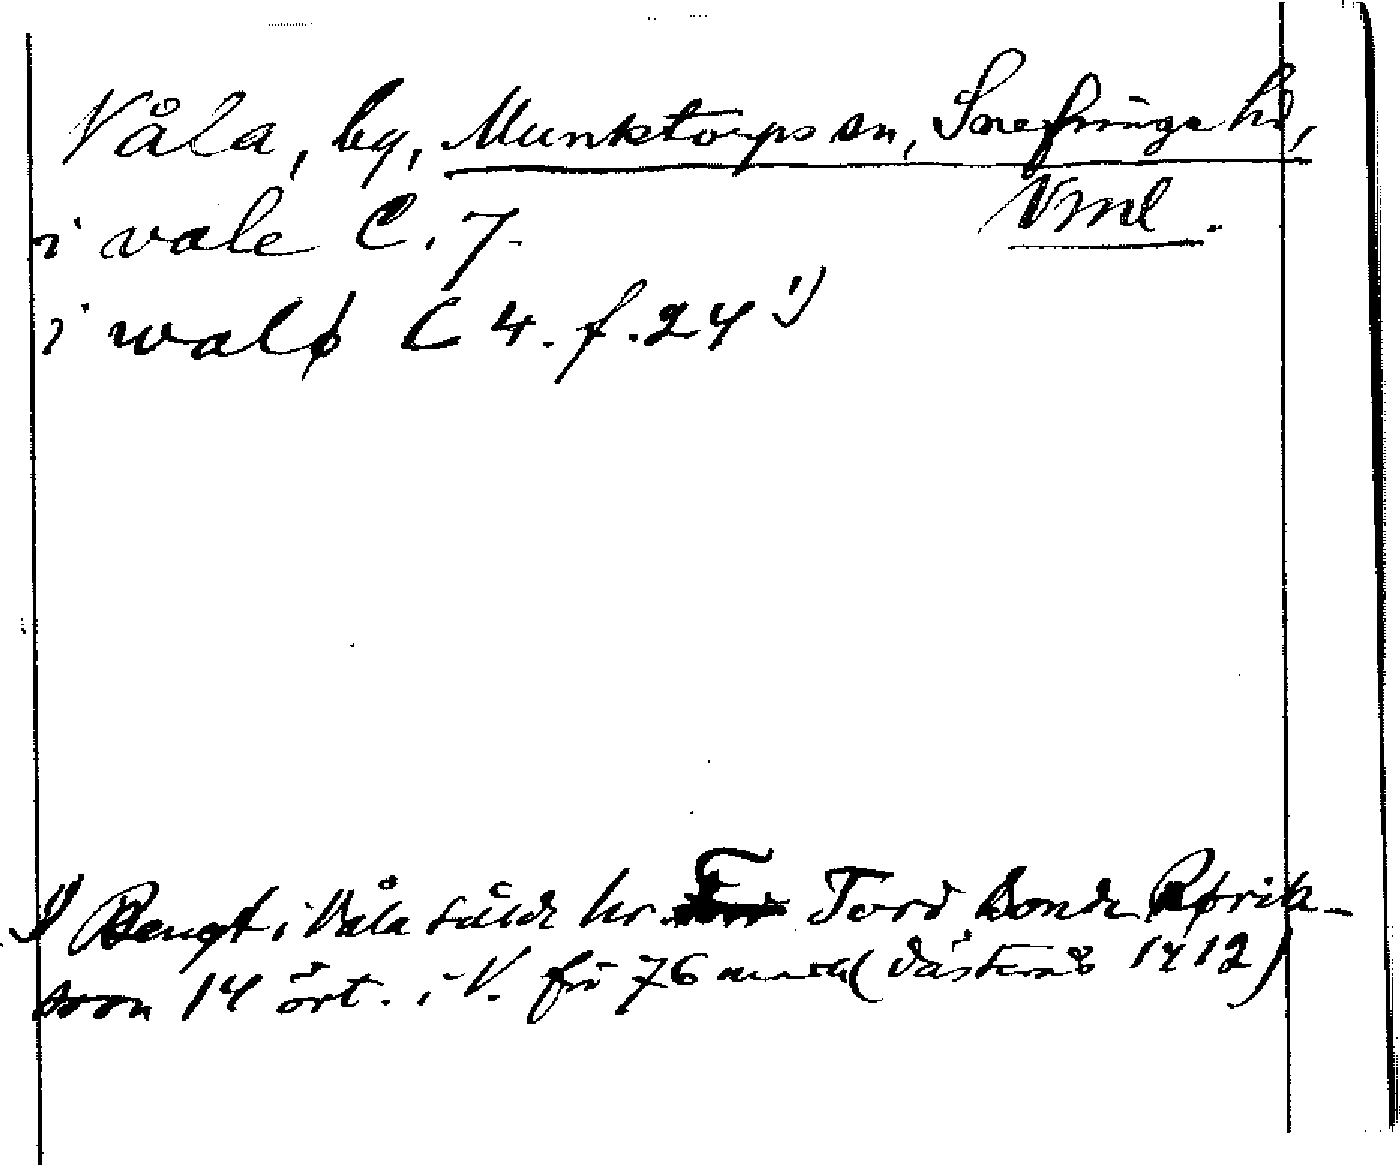 Våla, by, Munktorps sn, Snefringe hd,
Vml.
i vale C. 7.
i walø C 4. f. 24 1)
1) Bengt i Vala sålde hr. Tord Bonde Rørik-
son 14 ört. i V. för 76 mark (Västerås 1412)